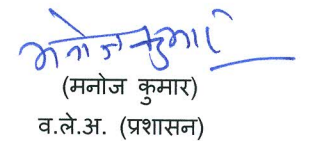 मनोज कुमार
(मनोज कुमार)
व.ले.अ. (प्रशासन)